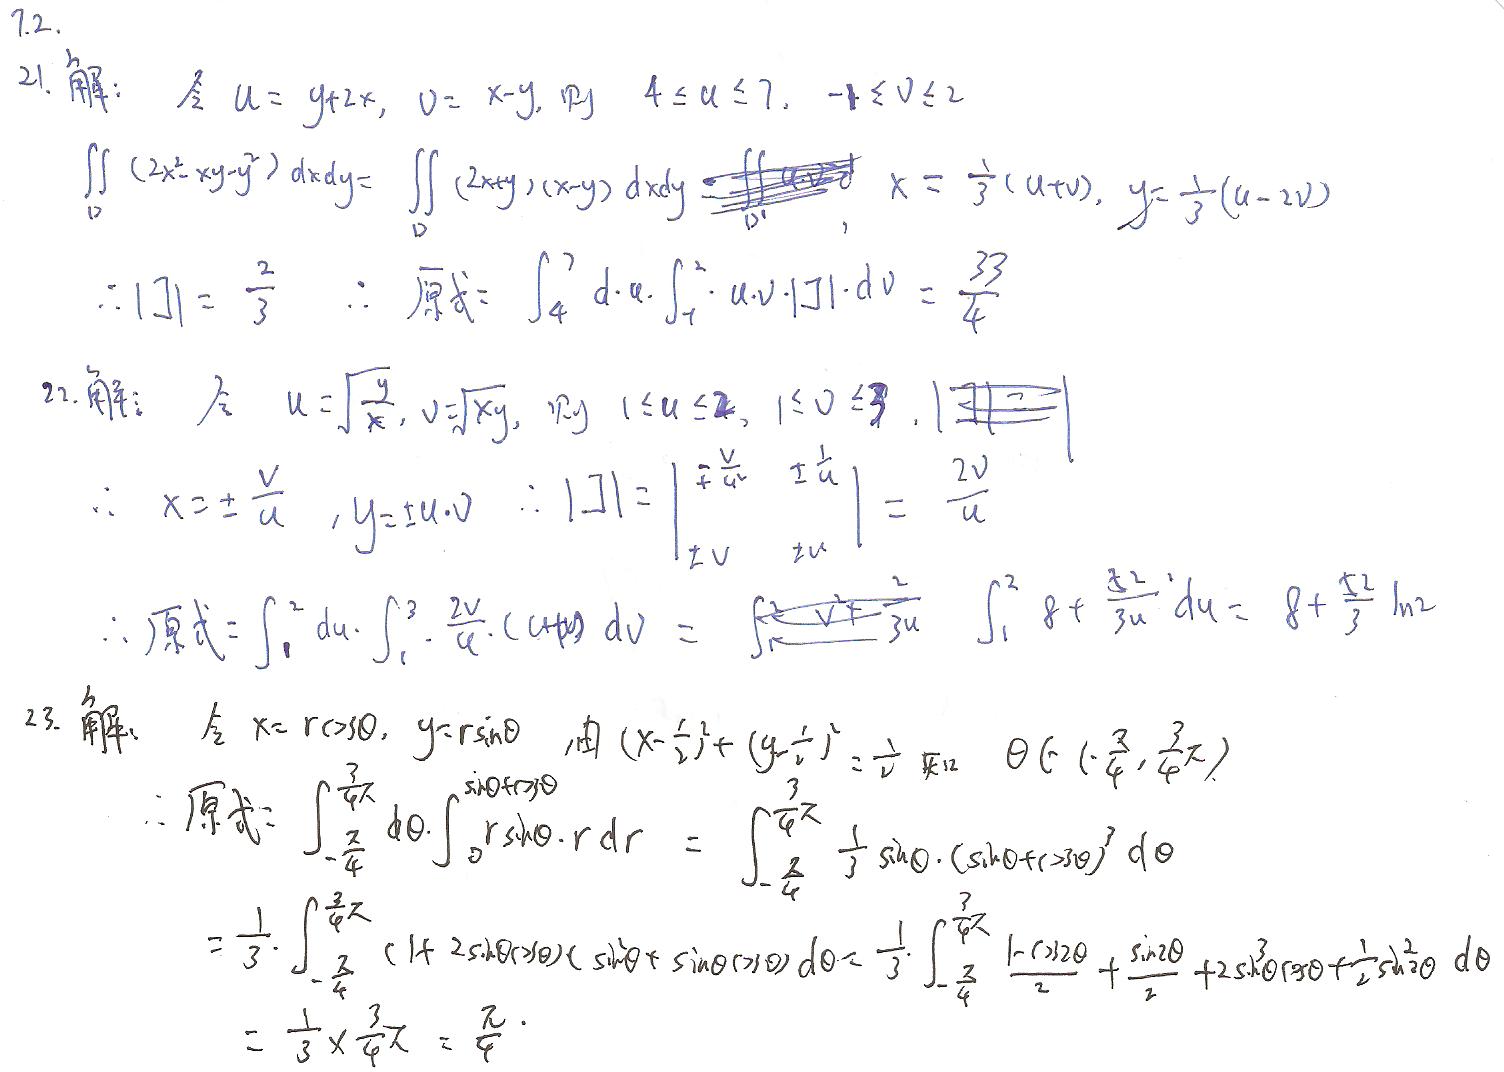 7.2.
21. 解: 令 u = y+2x, v = x-y, 则 4 ≤ u ≤ 7, -1 ≤ v ≤ 2
∬_D (2x²-xy-y²) dxdy = ∬_D (2x+y)(x-y) dxdy, x = 1/3 (u+v), y = 1/3 (u-2v)
∴ |J| = 2/3 ∴ 原式 = ∫_4^7 d·u· ∫_{-1}^2 · u·v·|J|·dv = 33/4
22. 解: 令 u = √(y/x), v = √(xy), 则 1 ≤ u ≤ 2, 1 ≤ v ≤ 3,
∴ x = ± v/u, y = ±u·v ∴ |J| = | ∓ v/u² ± 1/u ; ± v ± u | = 2v/u
∴ 原式 = ∫_1^2 du· ∫_1^3 · 2v/u ·(u+v) dv = ∫_1^2 8 + 52/3u du = 8 + 52/3 ln2
23. 解: 令 x = rcosθ, y = rsinθ, 由 (x-1/2)²+(y-1/2)² = 1/2 θ∈(-π/4, 3/4 π)
∴ 原式 = ∫_{-π/4}^{3/4 π} dθ· ∫_0^{sinθ+cosθ} rsinθ·r dr = ∫_{-π/4}^{3/4 π} 1/3 sinθ·(sinθ+cosθ)³ dθ
= 1/3 · ∫_{-π/4}^{3/4 π} (1+2sinθcosθ)(sin²θ+sinθcosθ) dθ = 1/3 · ∫_{-π/4}^{3/4 π} (1-cos2θ)/2 + sin2θ/2 + 2sin³θcosθ + 1/2 sin²2θ dθ
= 1/3 × 3/4 π = π/4.